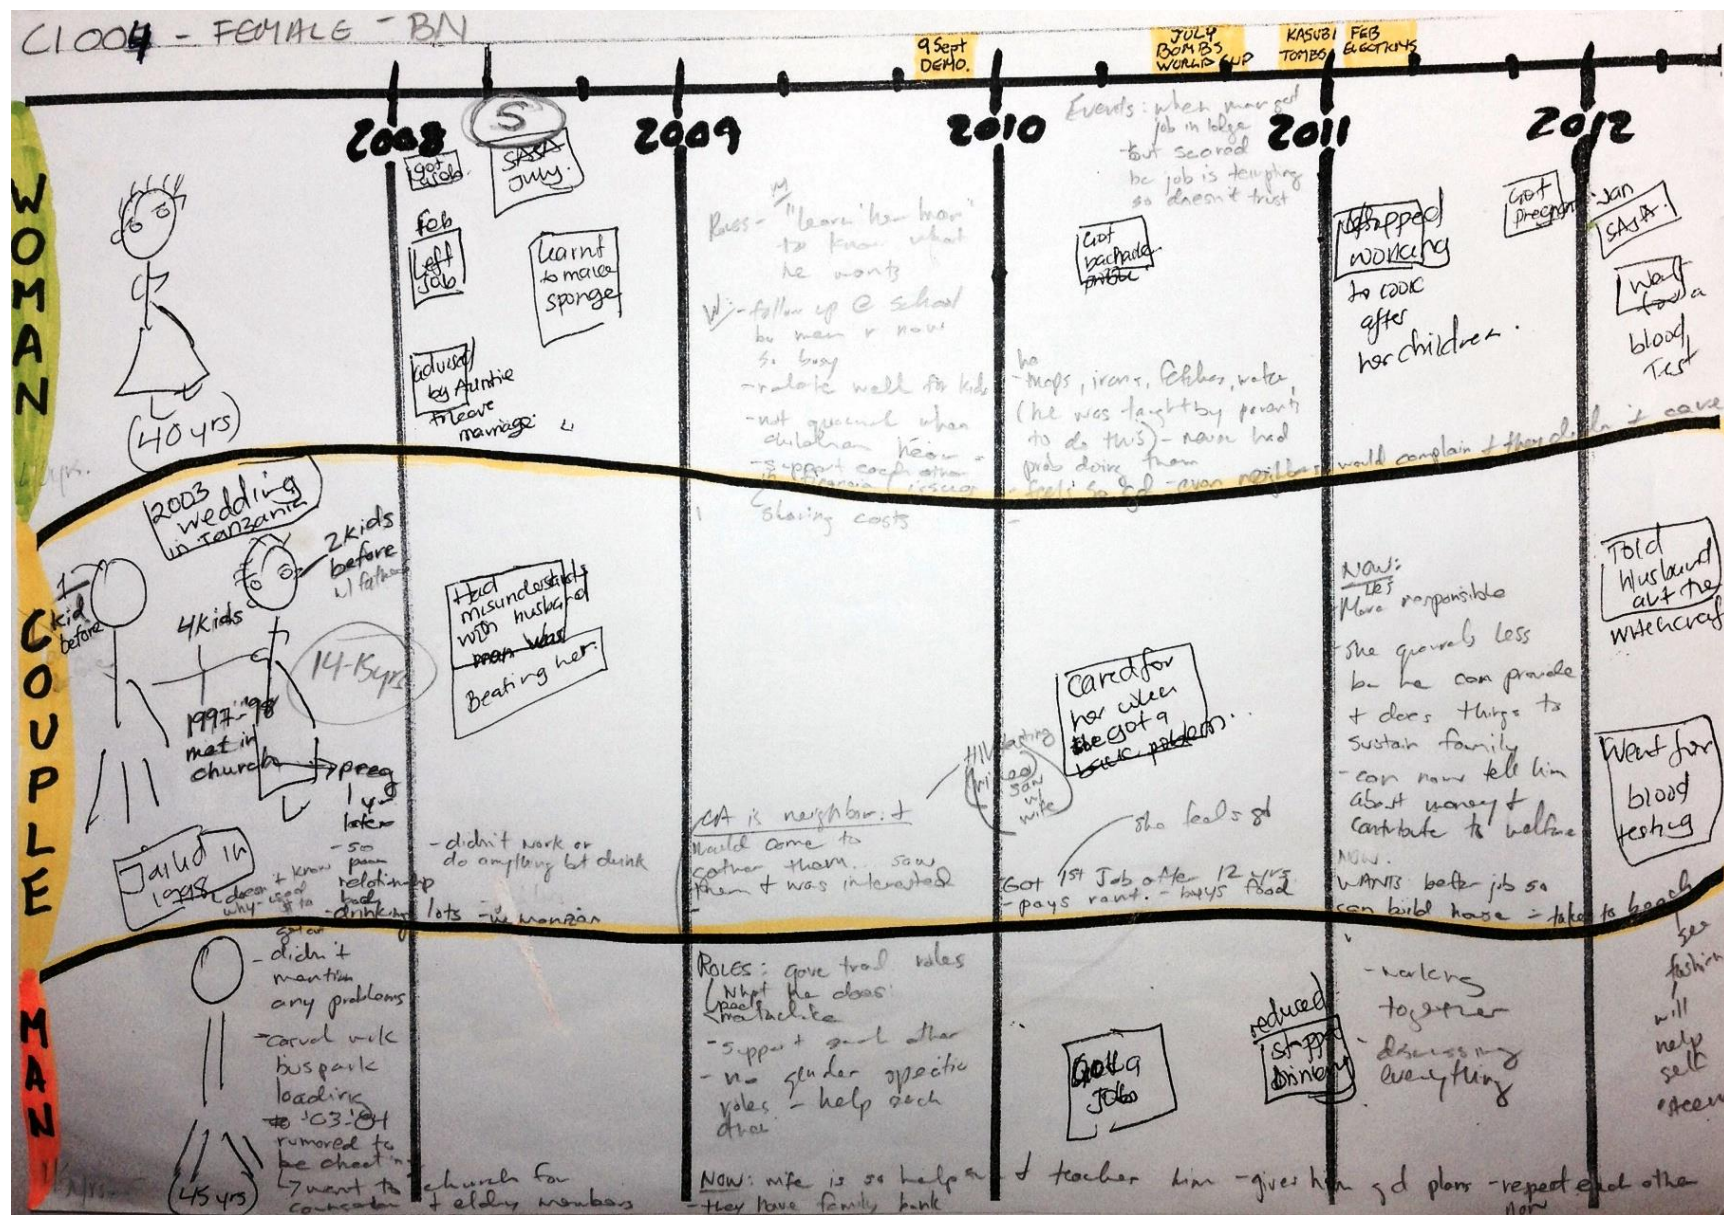 C1004 - FEMALE - BN
9 Sept
DEMO.
JULY
BOMBS
WORLD CUP
KASUBI
TOMBS
FEB
ELECTIONS
2008
2009
2010
2011
2012
S
WOMAN
(40 yrs)
got
a job.
SASA
July.
Feb
Left
Job
Learnt
to make
sponges
advised
by Auntie
to leave
marriage.
"learn her more"
to know what
he wants
W - follow up @ school
bc men r now
so busy
- relate well for kids
- not quarrel when
children hear
- support each other
in financial issues
sharing costs
Events: when man got
job in lodge
- but scared
bc job is tempting
so doesn't trust
Got
backache
he
- mops, irons, fetches, water,
(he was taught by parents
to do this) - never had
prob doing them
- feels so gd - even neighbors would complain & they didn't care
stopped
working
to look
after
her children.
Got
pregnant
Jan
SASA.
Went
for a
blood
Test
COUPLE
2003
wedding
in Tanzania
1
kid
before
2 kids
before
w/ father
4 kids
14-15 yrs
1997-'98
met in
church
preg
1 yr
later
- so
poor
relationship
- drinking lots - womanizer
Jailed in
1998
doesn't know
why - used
to
Had
misunderstands
with husband
man was
Beating her.
- didn't work or
do anything but drink
CA is neighbor &
would come to
gather them.. saw
them & was interested
HIV testing
saw
w/
wife
Cared for
her when
she got a
back problem...
she feels gd
- Got 1st Job after 12 yrs.
- pays rent. - buys food
NOW:
More responsible
- she quarrels less
bc he can provide
& does things to
sustain family
- can now tell him
about money &
contribute to welfare
NOW.
WANTS better job so
can build house - take to beach
see
fashion
will
help
self
esteem
Told
Husband
abt the
witchcraft
Went for
blood
testing
MAN
(45 yrs)
- didn't
mention
any problems
- casual work
bus park
loading
to '03-'04
rumored to
be cheating
→ went to church for
counselor & elderly members
ROLES: gave trad roles
What he does:
- support each other
- no gender specific
roles - help each
other
NOW: wife is so helpful & teaches him - gives him gd plans - respect each other
now
- they have family bank
Got a
Job
reduced
stopped
Drinking
- working
together
- discussing
everything